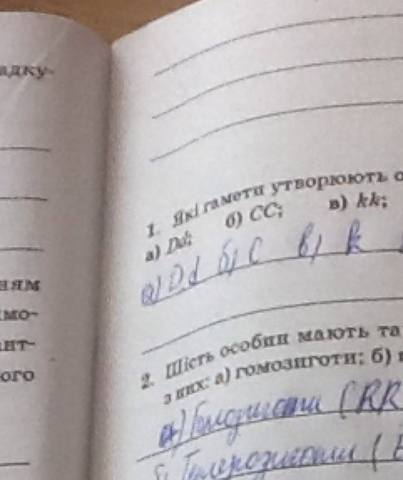 адку-
ням
імо-
ант-
ого
1. Які гамети утворюють о
а) Dd; б) CC; в) kk;
а) D d б) C в) k
2. Шість особин мають та
з них: а) гомозиготи; б)
а) Гомозиготи (RR
б) Гетерозиготи (